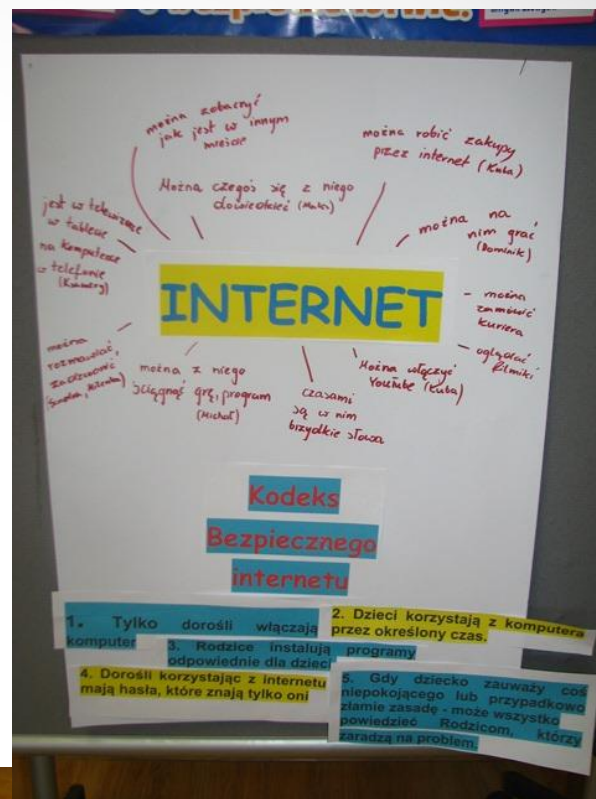 można zobaczyć
jak jest w innym
mieście
można robić zakupy
przez internet (Kuba)
Można czegoś się z niego
dowiedzieć
jest w telewizorze
w tablecie
na komputerze
w telefonie
można na
nim grać
(Dominik)
INTERNET
można
zamówić
kuriera
oglądać
filmiki
można
rozmawiać,
zadzwonić
można z niego
ściągnąć grę, program
(Michał)
czasami
są w nim
brzydkie słowa
Można włączyć
YouTube (Kuba)
Kodeks
Bezpiecznego
internetu
1. Tylko dorośli włączają
komputer
2. Dzieci korzystają z komputera
przez określony czas.
3. Rodzice instalują programy
odpowiednie dla dzieci
4. Dorośli korzystając z internetu
mają hasła, które znają tylko oni
5. Gdy dziecko zauważy coś
niepokojącego lub przypadkowo
złamie zasadę - może wszystko
powiedzieć Rodzicom, którzy
zaradzą na problem.